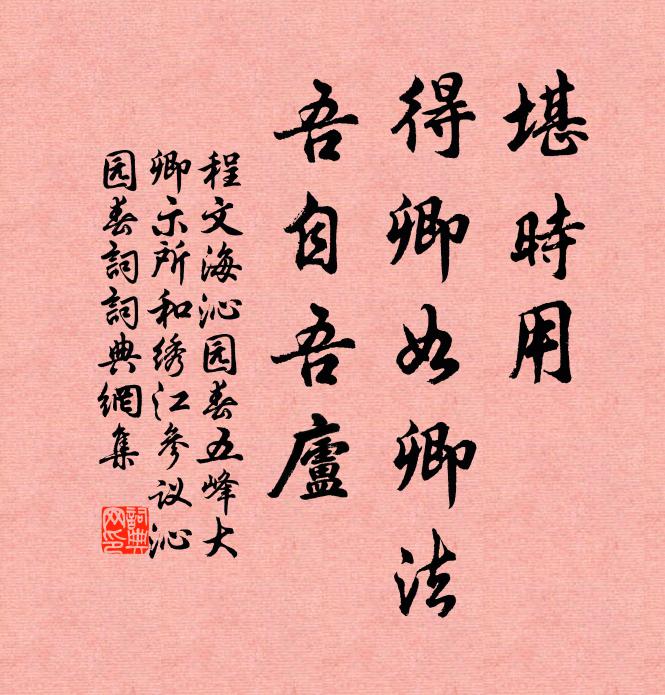 堪時用
得卿如卿法
吾自吾廬
程文海沁园春五峰大
卿示所和绣江参议沁
园春詞詞典網集
詞典网印